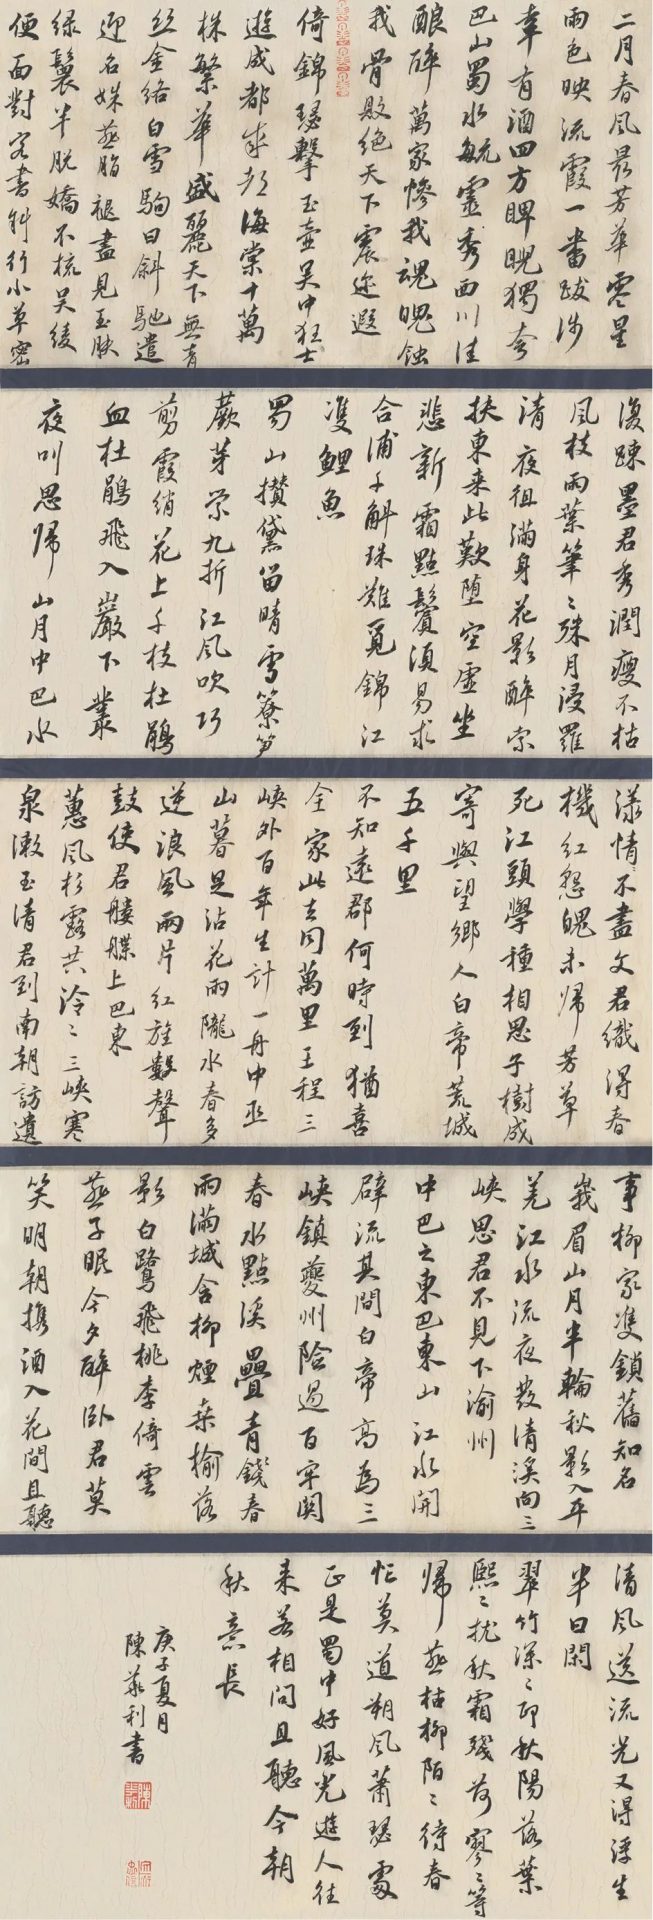 二月春風最芳華零星
雨色映流霞一番跋涉
幸有酒四方睥睨獨夸
巴山蜀水毓靈秀西川佳
釀醉萬家慘我魂魄蝕
我骨敗絶天下震迩遐
倚錦瑟擊玉壺吴中狂士
遊成都成都海棠十萬
株繁華盛麗天下無青
絲金絡白雪駒日斜馳遣
迎名姝燕脂褪盡見玉膚
緑鬟半脱嬌不梳吴綾
便面對客書斜行小草密
復疎墨君秀潤瘦不枯
風枝雨葉筆〻殊月浸羅
清夜徂滿身花影醉索
扶東来此歎墮空虚坐
悲新霜點鬢須易求
合浦千斛珠難覓錦江
雙鯉魚
蜀山攅黛留晴雪簝笋
蕨芽縈九折江風吹巧
剪霞綃花上千枝杜鵑
血杜鵑飛入巖下叢
夜叫思歸山月中巴水
漾情不盡文君織得春
機紅怨魄未歸芳草
死江頭學種相思子樹成
寄與望鄉人白帝荒城
五千里
不知遠郡何時到猶喜
全家此去同萬里王程三
峽外百年生計一舟中巫
山暮足沾花雨隴水春多
逆浪風兩片紅旌數聲
鼓使君艛艓上巴東
蕙風杉露共泠〻三峽寒
泉漱玉清君到南朝訪遺
事柳家雙鎖舊知名
峩眉山月半輪秋影入平
羌江水流夜發清溪向三
峽思君不見下渝州
中巴之東巴東山江水開
闢流其間白帝高為三
峽鎮夔州險過百牢関
春水點溪疊青錢春
雨滿城含柳煙桒榆落
影白鷺飛桃李倚雲
燕子眠今夕醉卧君莫
笑明朝携酒入花間且聽
清風送流光又得浮生
半日閑
翠竹深〻印秋陽落葉
熙〻扰秋霜殘荷寥〻等
歸燕枯柳陌〻待春
忙莫道朔風蕭瑟處
正是蜀中好風光遊人往
来若相問且聽今朝
秋意長
庚子夏月
陳兼利書